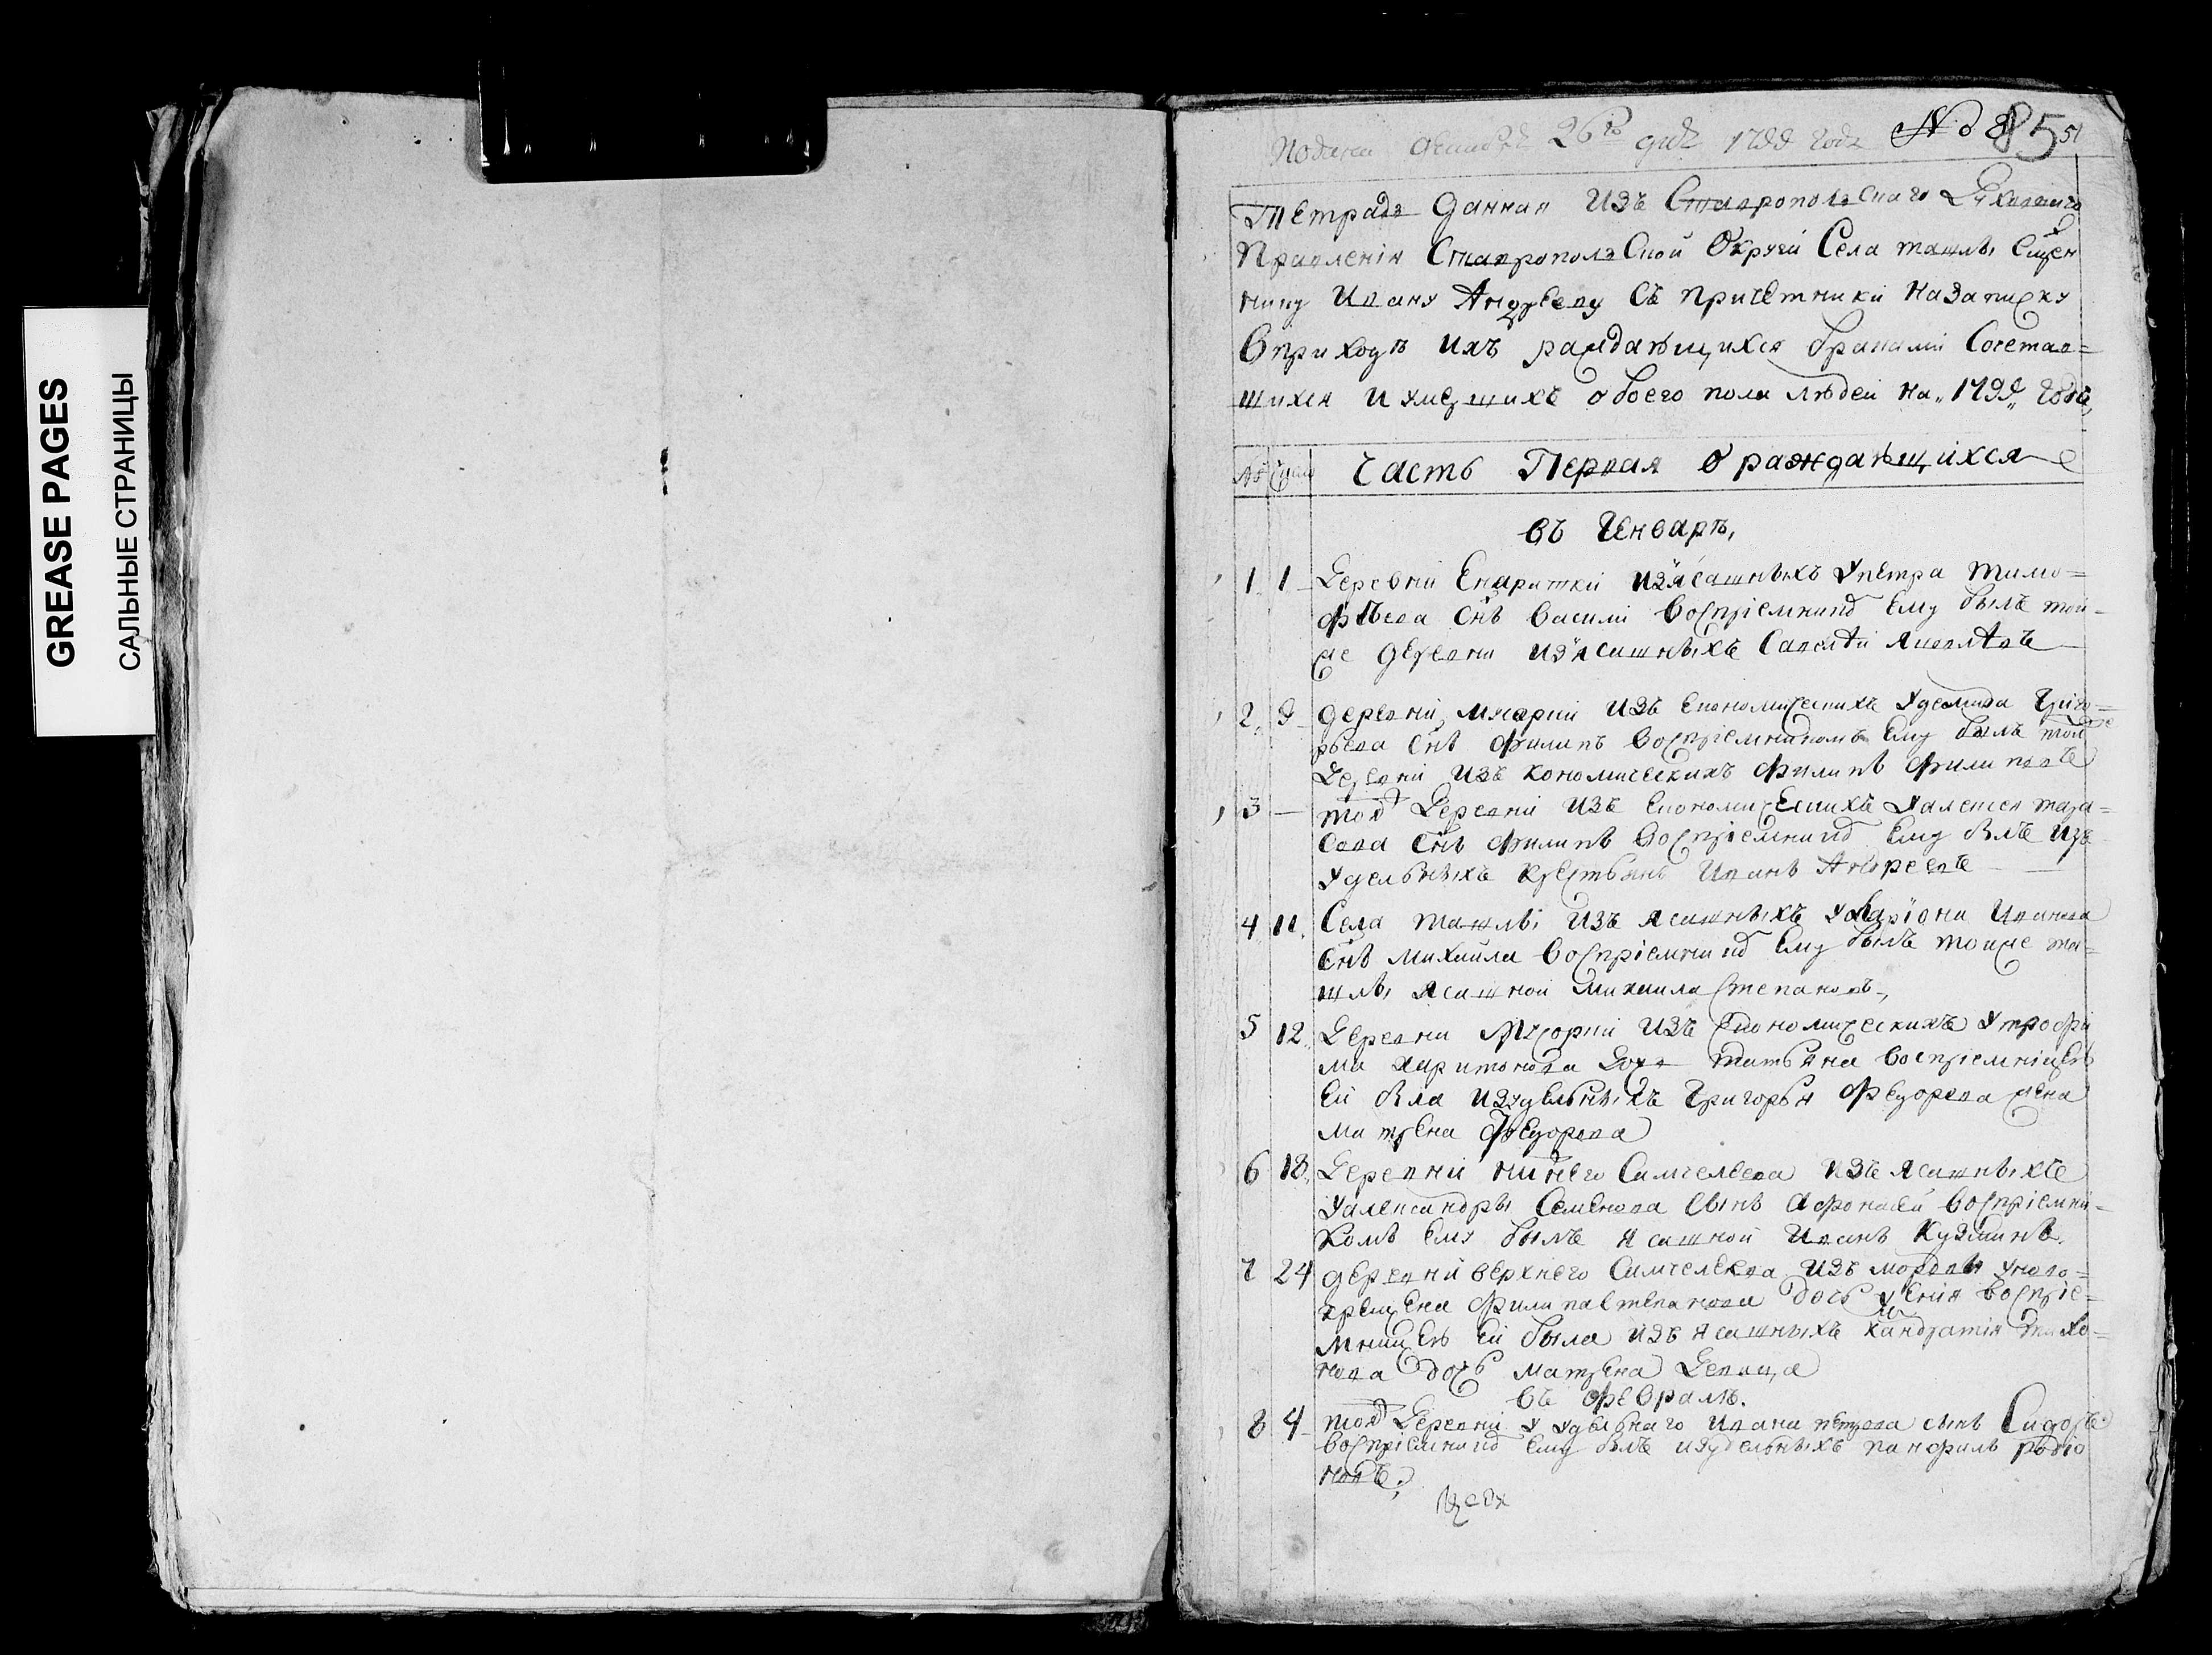 GREASE PAGES
САЛЬНЫЕ СТРАНИЦЫ
Подана 26го 1799 года № 85 51
Тетрадь Данная изъ Ставропольскаго Духовнаго
Правленія Ставропольской Округи Села ташлы Сщен
нику Ивану Андрееву Съ причетники на Записку
В приходѣ ихъ раждающихся браками Сочетав=
шихся и умерших обоего пола людей на „1799„ Годъ,
№ Число Часть Первая О раждающихся
въ Генварѣ,
1 1 Деревни изъ ясашныхъ у петра тимо=
фѣева Снъ Василій Воспріемнико ему былъ той-
же деревни изъ ясашныхъ Савелей
2 9 деревни, изъ економическихъ у демида Григо=
рьева Снъ филипъ Воспріемникомъ ему былъ тойже
Деревни изъ кономическихъ филипъ филиповъ
3 — той Деревни изъ економическихъ у алексея тара=
сова Снъ филипъ Воспріемнико ему былъ изъ
удельныхъ крестьянъ Иванъ Андреевъ
4 11. Села ташлы изъ ясашныхъ у лариона Иванова
Снъ михайла Воспріемнико ему былъ тоиже та=
шлы ясашной михаила Степановъ,
5 12 Деревни изъ економическихъ у трофи
ма харитонова Дочь татьяна Воспріемницею
ей была изъ удельныхъ Григорья федорова жена
матрена федорова
6 18. Деревни нижнего Симчелеева изъ ясашныхъ
у александры Семенова сынъ афонасей Воспріемни=
комъ ему былъ ясашной Иванъ Кузминъ.
7 24 деревни верхнего Симчелеева изъ мордвы у ново=
крещена филипа степанова дочь Воспріе=
мницею ей была изъ ясашныхъ Кандратія тихо=
нова дочь матрена Девица
въ февралѣ.
8 4 той Деревни у удельнаго Ивана петрова сынъ Сидоръ
воспріемнико ему былъ изъ удельныхъ панфилъ родіо
новъ.